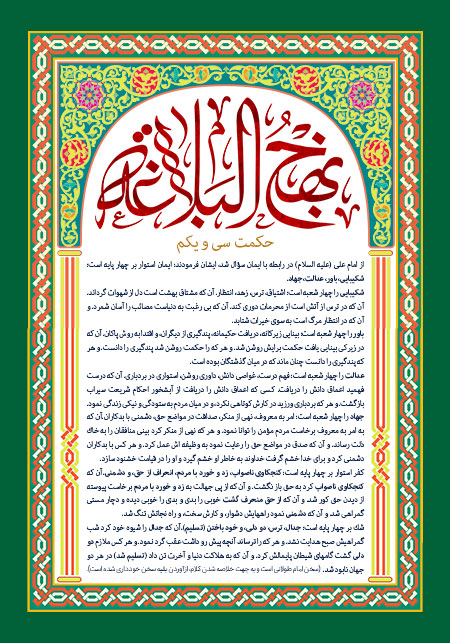 نهج البلاغة
حکمت سی و یکم
از امام علی (علیه السلام) در رابطه با ایمان سؤال شد، ایشان فرمودند: ایمان استوار بر چهار پایه است:
شکیبایی، باور، عدالت، جهاد.
شکیبایی را چهار شعبه است: اشتیاق، ترس، زهد، انتظار. آن که مشتاق بهشت است دل از شهوات گرداند.
آن که در ترس از آتش است از محرمات دوری کند، آن که بی رغبت به دنیاست مصائب را آسان شمرد، و
آن که در انتظار مرگ است به سوی خیرات شتابد.
باور را چهار شعبه است: بینایی زیرکانه، دریافت حکیمانه، پندگیری از دیگران، و اقتدا به روش پاکان. آن که
در زیرکی بینایی یافت حکمت برایش روشن شد. و هر که را حکمت روشن شد پندگیری را دانست. و هر
که پندگیری را دانست چنان ماند که در میان گذشتگان بوده است.
عدالت را چهار شعبه است: فهم درست، غواصی دانش، داوری روشن، استواری در بردباری، آن که درست
فهمید اعماق دانش را دریافت، کسی که اعماق دانش را دریافت از آبشخور احکام شریعت سیراب
بازگشت. و هر که بردباری ورزید در کارش کوتاهی نکرد، و در میان مردم به ستودگی و نیکی زندگی نمود.
جهاد را چهار شعبه است: امر به معروف، نهی از منکر، صداقت در مواضع حق، دشمنی با بدکاران. آن که
به امر به معروف برخاست مردم مؤمن را توانا نمود. و هر که نهی از منکر کرد بینی منافقان را به خاک
ذلت رساند. و آن که صدق در مواضع حق را رعایت نمود به وظیفه اش عمل کرد. و هر کس با بدکاران
دشمنی کرد و برای خدا خشم گرفت خداوند به خاطر او خشم گیرد و او را در قیامت خشنود سازد.
کفر استوار بر چهار پایه است: کنجکاوی ناصواب، زد و خورد با مردم، انحراف از حق، و دشمنی. آن که
کنجکاوی ناصواب کرد به حق باز نگشت. و آن که از پی جهالت به زد و خورد با مردم برخاست پیوسته
از دیدن حق کور شد. و آن که از حق منحرف گشت خوبی را بدی و بدی را خوبی دیده و دچار مستی
گمراهی شد. و آن که دشمنی نمود راههایش دشوار، و کارش سخت، و راه نجاتش تنگ شد.
شک بر چهار پایه است: جدال، ترس، دو دلی، و خود باختن (تسلیم). آن که جدال را شیوه خود کرد شب
گمراهیش صبح هدایت نشد. و هر که را ترساند آنچه پیش رو داشت عقب گرد نمود. و هر کس ملازم دو
دلی گشت گامهای شیطان پایمالش کرد. و آن که به هلاکت دنیا و آخرت تن داد (تسلیم شد) در هر دو
جهان نابود شد. (سخن امام طولانی است و به جهت خلاصه شدن کلام، از آوردن بقیه سخن خودداری شده است)